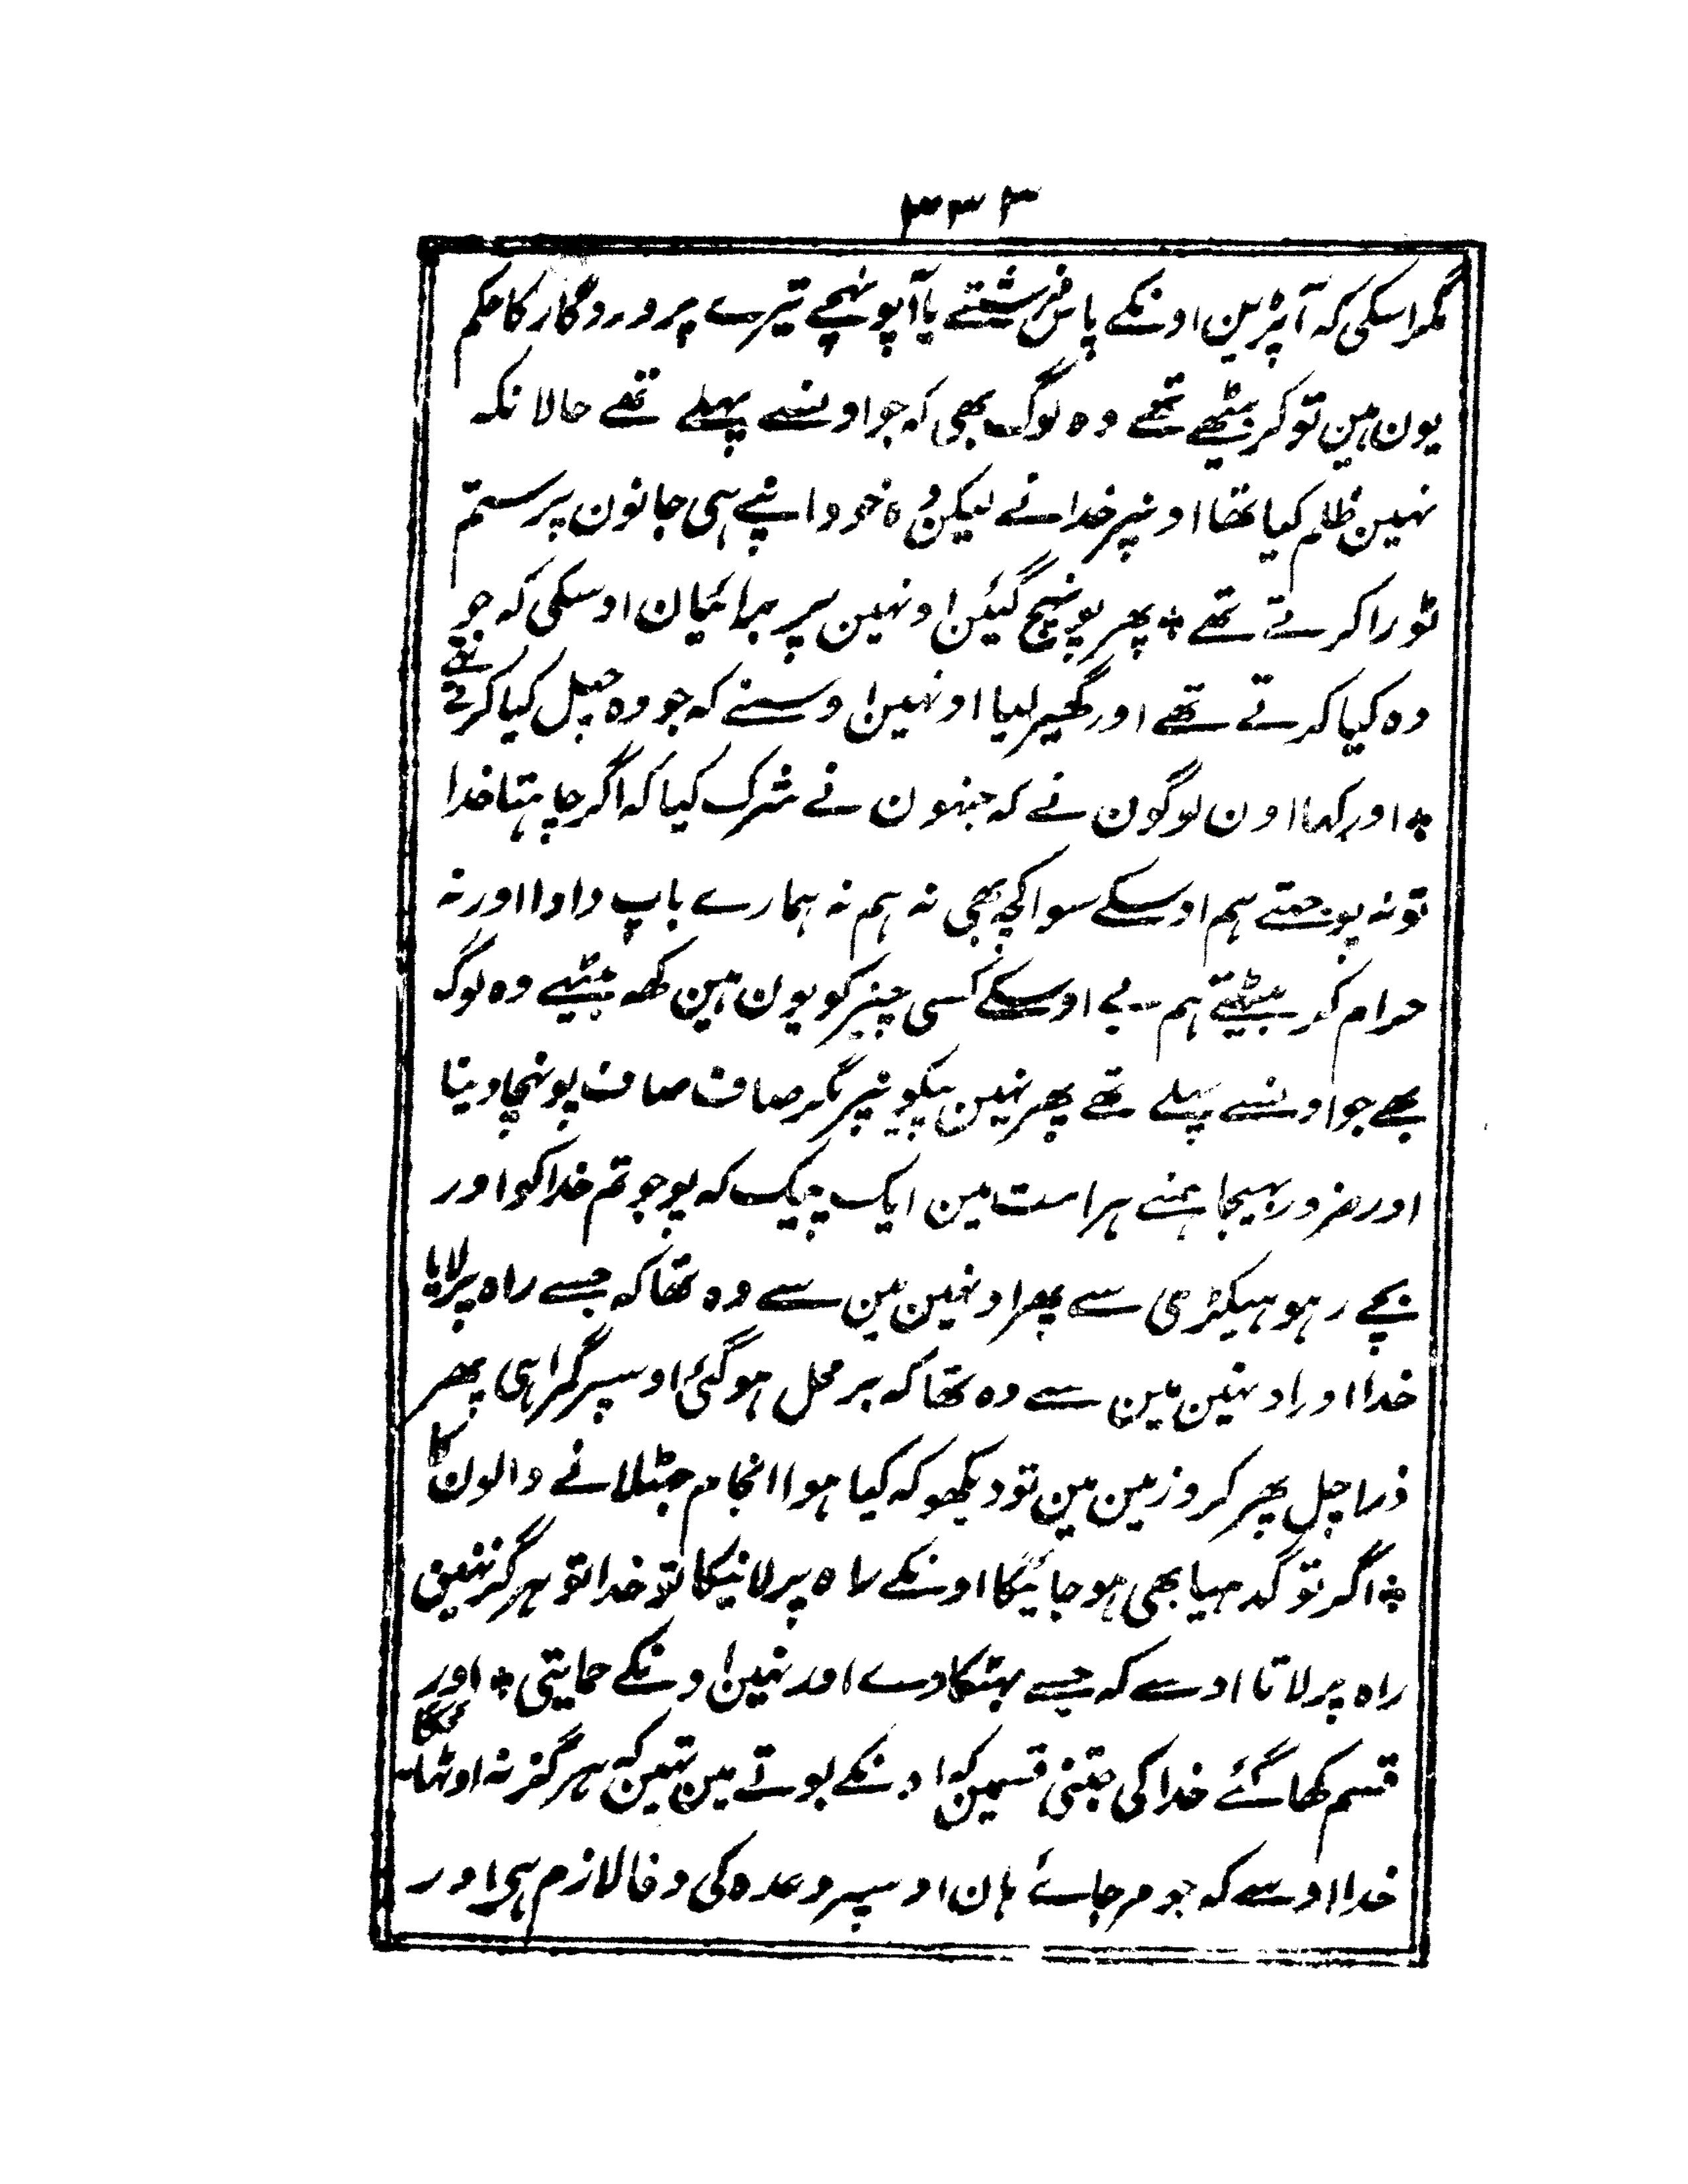 ۳۳۳
مگر اسکی کہ آپڑین اونکے پاس فرشتے یا آپونہچے تیرے پروردگار کا حکم
یون ہین تو کر بیٹھے تھے وہ لوگ بھی کہ جو اونسے پہلے تھے حالانکہ
نہین ظلم کیا تھا اونپر خدا نے لیکن وہ خود اپنے ہی جانون پر ستم
توڑا کرتے تھے * پھر پونہچ گیئن اونہین پر برائیان اوسکی کہ جو
وہ کیا کرتے تھے اور گھیر لیا اونہین اوسنے کہ جو وہ چہل کیا کرتے تھے
* اور کہا اون لوگون نے کہ جنہون نے شرک کیا کہ اگر چاہتا خدا
تو نہ پوجتے ہم اوسکے سوا کچہ بھی نہ ہم نہ ہمارے باپ دادا اور نہ
حرام کر بیٹھتے ہم بے اوسکے کسی چیز کو یون ہین کہہ بیٹھے وہ لوگ
بھے جو اونسے پہلے تھے پھر نہین پیکونپر مگر صاف صاف پونہچا دینا
اور ضرور بہیجا ہمنے ہر امت مین ایک پیک کہ پوجو تم خدا کو اور
بچے رہو ہیکڑی سے پھر اونہین مین سے وہ تھا کہ جسے راہ پر لایا
خدا اور اونہین مین سے وہ تھا کہ بر محل ہو گئی اوسپر گمراہی پھر
ذرا چل پھر کرو زمین مین تو دیکھو کہ کیا ہوا انجام جہٹلانے والون کا
* اگر تو گدہیا بھی ہو جائیگا اونکے راہ پر لانیکا تو خدا تو ہرگز نہین
راہ پر لاتا اوسے کہ جسے بہٹکا دے اور نہین اونکے حمایتی * اور
قسم کھا گئے خدا کی جتنی قسمین کہ اونکے بوتے مین تہین کہ ہرگز نہ اوٹھائیگا
خدا اوسے کہ جو مر جائے ہان اوسپر وعدہ کی وفا لازم ہی اور